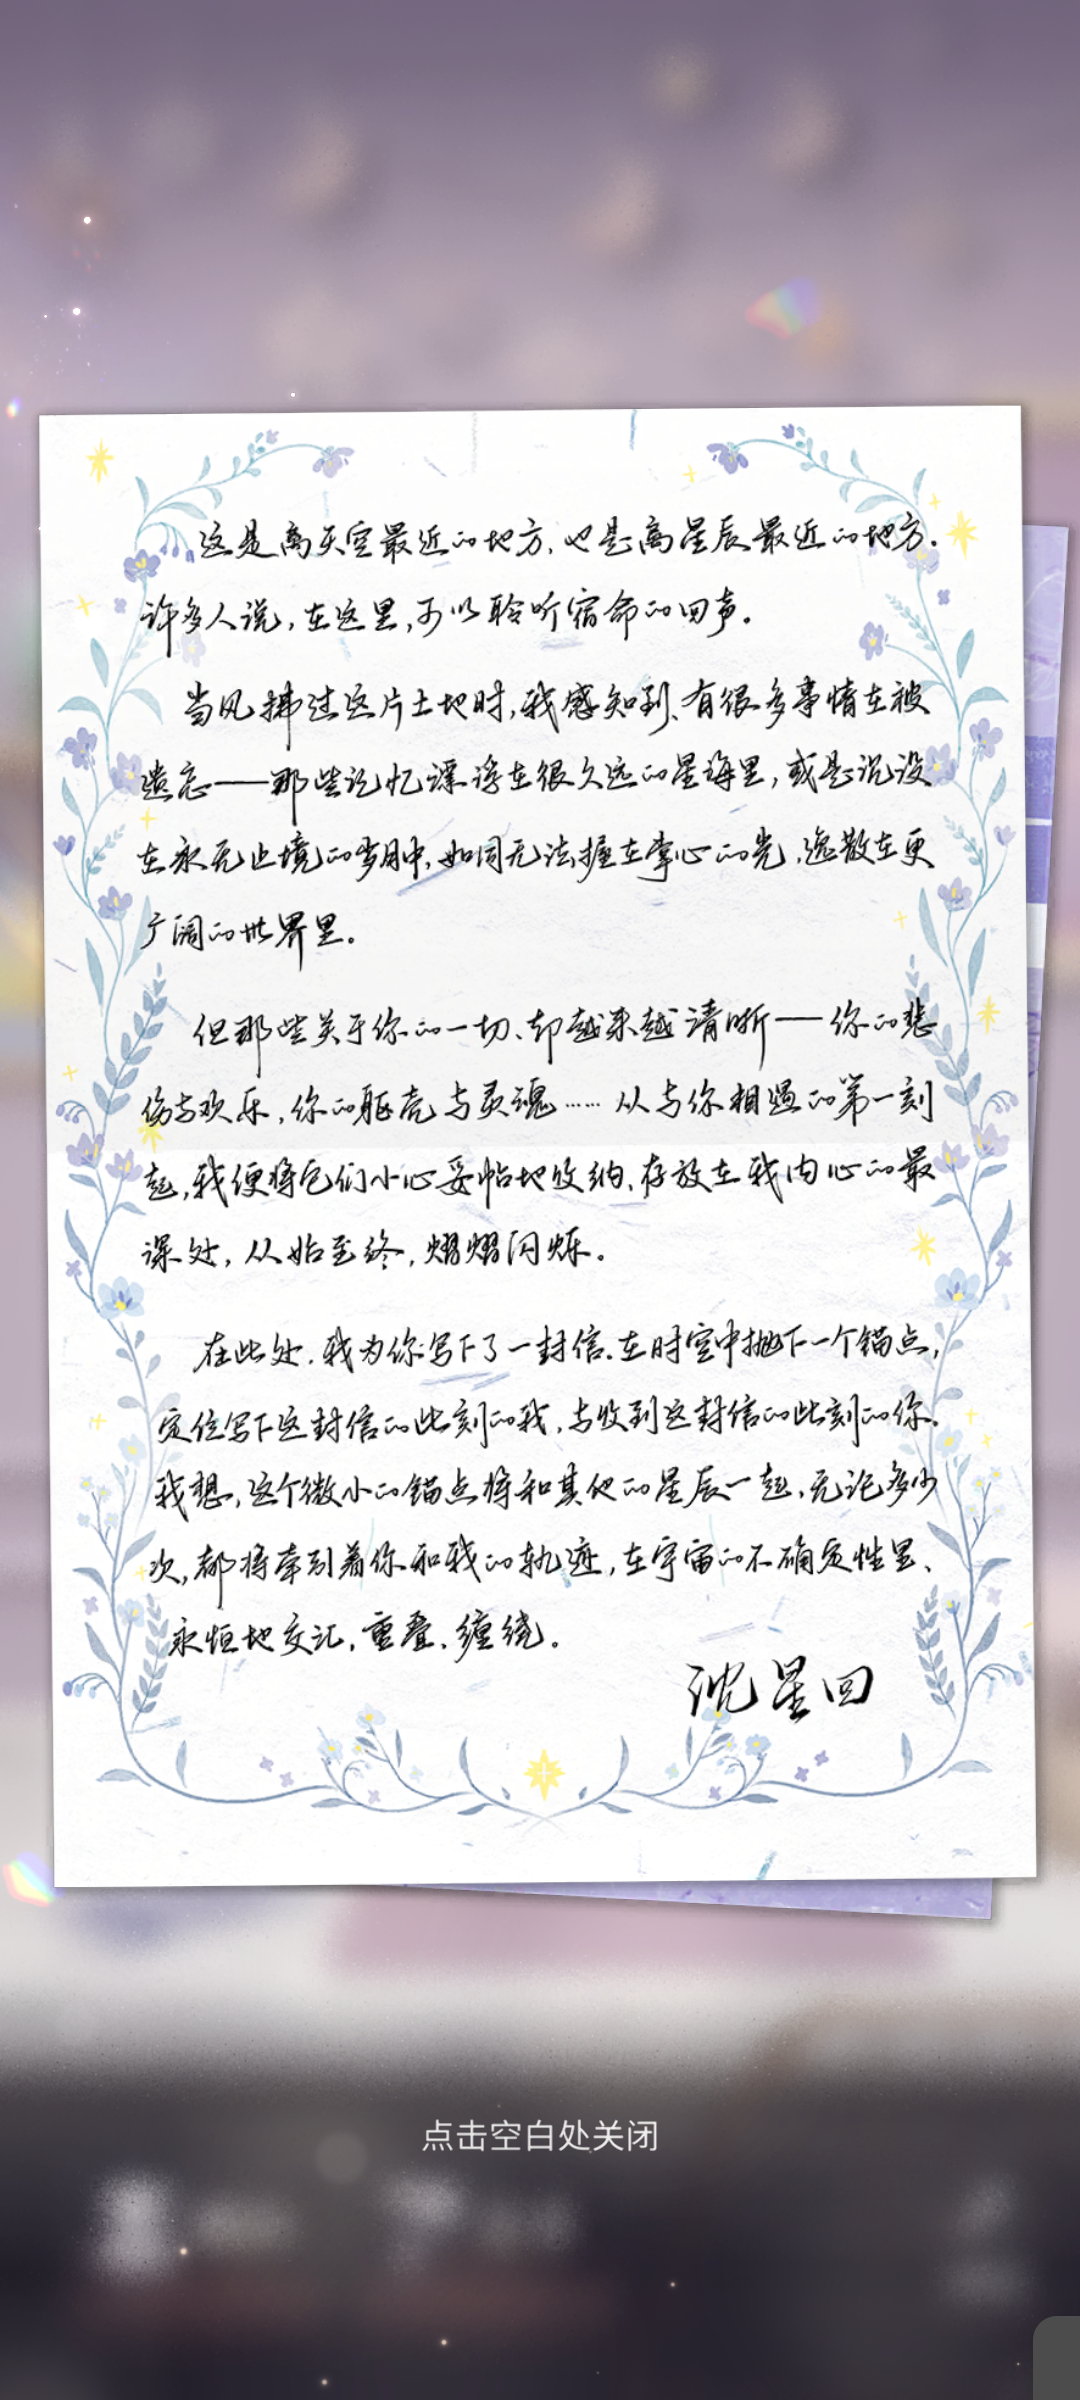 这是离天空最近的地方,也是离星辰最近的地方.
许多人说,在这里,可以聆听宿命的回声。
当风拂过这片土地时,我感知到,有很多事情在被
遗忘——那些记忆漂浮在很久远的星海里,或是沉没
在永无止境的岁月中,如同无法握在掌心的光,逸散在更
广阔的世界里。
但那些关于你的一切,却越来越清晰——你的悲
伤与欢乐,你的躯壳与灵魂……从与你相遇的第一刻
起,我便将它们小心妥帖地收纳,存放在我内心的最
深处,从始至终,熠熠闪烁。
在此处,我为你写下了一封信.在时空中抛下一个锚点,
定位写下这封信的此刻的我,与收到这封信的此刻的你。
我想,这个微小的锚点将和其他的星辰一起,无论多少
次,都将牵引着你和我的轨迹,在宇宙的不确定性里、
永恒地交汇,重叠,缠绕。
沈星回
点击空白处关闭